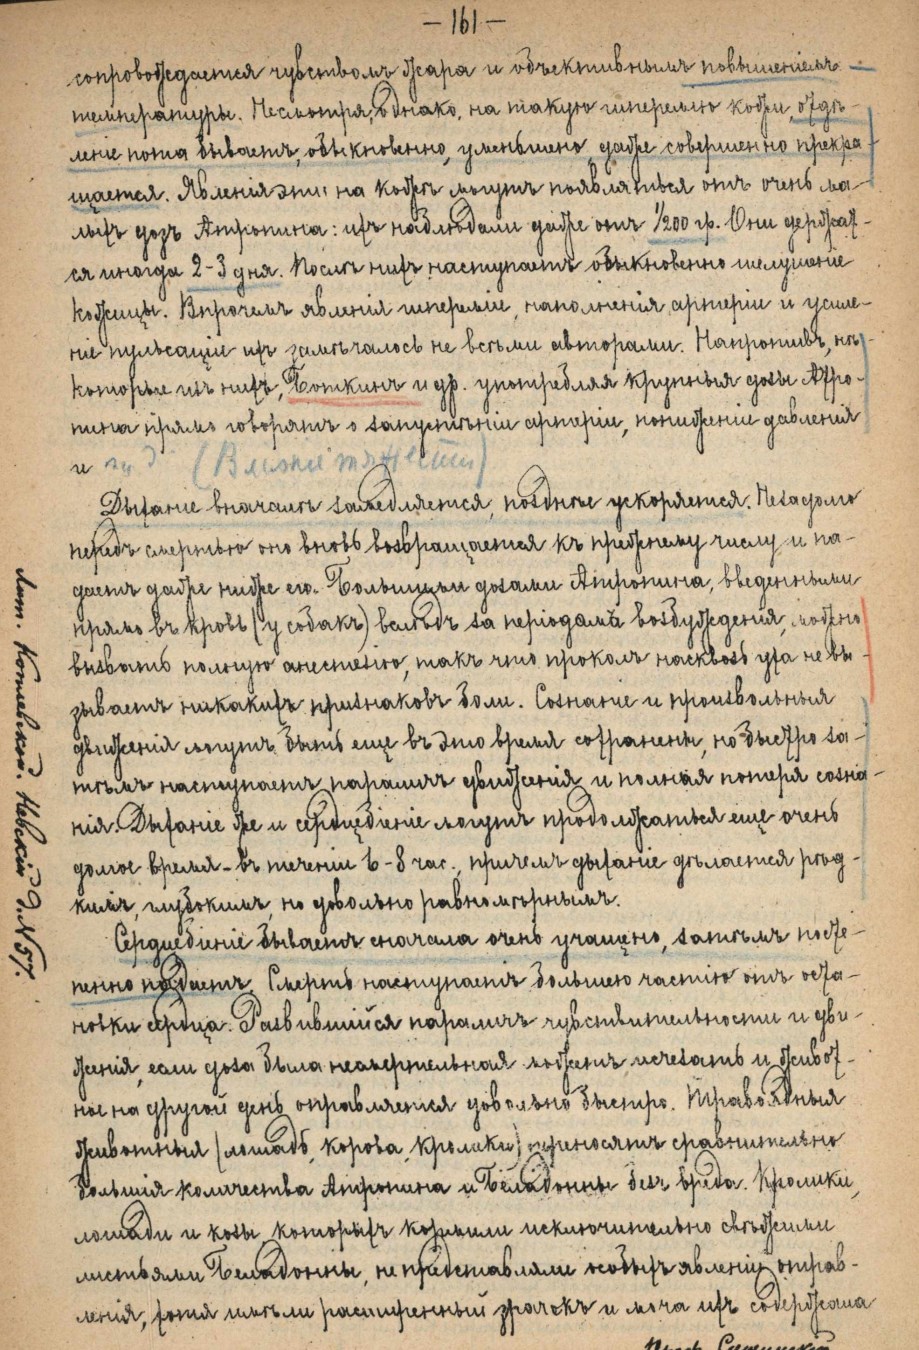 — 161 —
сопровождается чувствомъ жара и объективнымъ повышеніемъ
температуры. Несмотря, однако, на такую гиперемію кожи, отдѣ-
леніе пота бываетъ, обыкновенно, уменьшено, даже совершенно прекра-
щается. Явленія эти на кожѣ могутъ появляться отъ очень ма-
лыхъ дозъ Атропина: ихъ наблюдали даже отъ 1/200 гр. Они держат-
ся иногда 2-3 дня. Послѣ нихъ наступаетъ обыкновенно шелушеніе
кожицы. Впрочемъ явленія гипереміи, наполненія артерій и усиле-
ніе пульсаціи ихъ замѣчалось не всѣми авторами. Напротивъ, нѣ-
которые изъ нихъ, Боткинъ и др. употребляя крупныя дозы Атро-
пина прямо говорятъ о запустѣніи артерій, пониженіи давленія
и
Дыханіе вначалѣ замедляется, позднѣе ускоряется. Незадолго
передъ смертью оно вновь возвращается къ прежнему числу и па-
даетъ даже ниже его. Большими дозами Атропина, введенными
прямо въ кровь (у собакъ) вслѣдъ за періодомъ возбужденія, можно
вызвать полную анестезію, такъ что проколъ насквозь уха не вы-
зываетъ никакихъ признаковъ боли. Сознаніе и произвольныя
движенія могутъ быть еще въ это время сохранены, но быстро за-
тѣмъ наступаетъ параличъ движенія и полная потеря созна-
нія. Дыханіе же и сердцебіеніе могутъ продолжаться еще очень
долгое время - въ теченіи 6-8 час., причемъ дыханіе дѣлается рѣд-
кимъ, глубокимъ, но довольно равномѣрнымъ.
Сердцебіеніе бываетъ сначала очень учащено, затѣмъ посте-
пенно падаетъ. Смерть наступаетъ большею частію отъ оста-
новки сердца. Развившійся параличъ чувствительности и дви-
женія, если доза была несмертельная можетъ исчезать и живот-
ное на другой день оправляется довольно быстро. Травоядныя
животныя (лошадь, корова, кролики) переносятъ сравнительно
большія количества Атропина и Белладонны безъ вреда. Кролики,
лошади и козы, которыхъ кормили исключительно свѣжими
листьями Белладонны, не представляли особыхъ явленій отрав-
ленія, хотя имѣли расширенный зрачокъ и моча ихъ содержала
Лит. Невскій д. № 57.